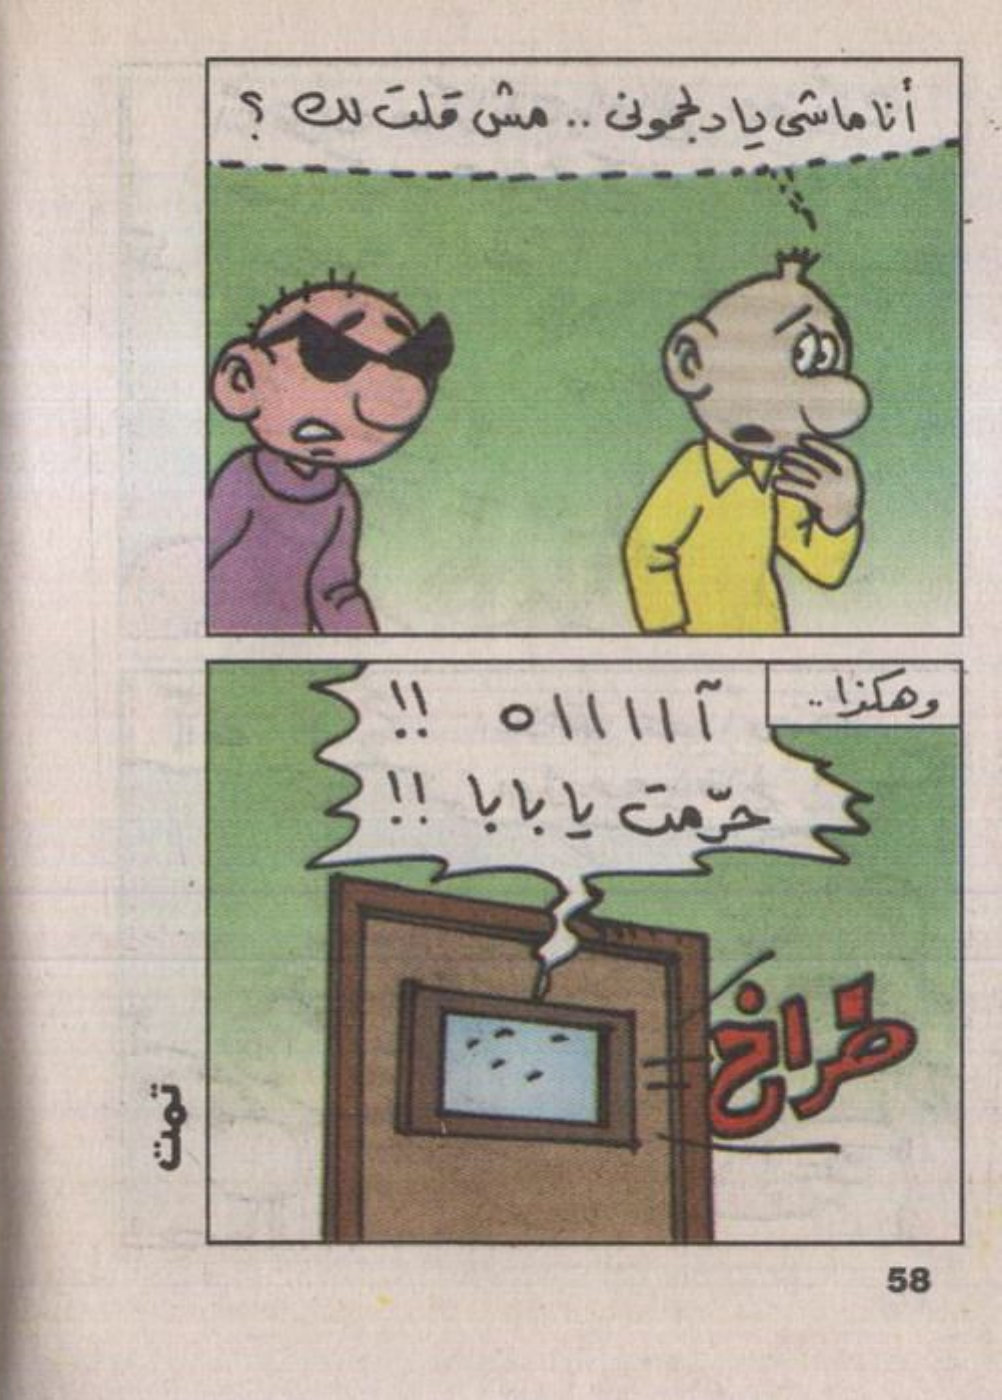 أنا ماشى يا دلجمونى .. مش قلت لك ؟
وهكذا ..
آااااااه !!
حرّمت يا بابا !!
طراخ
تمت
58